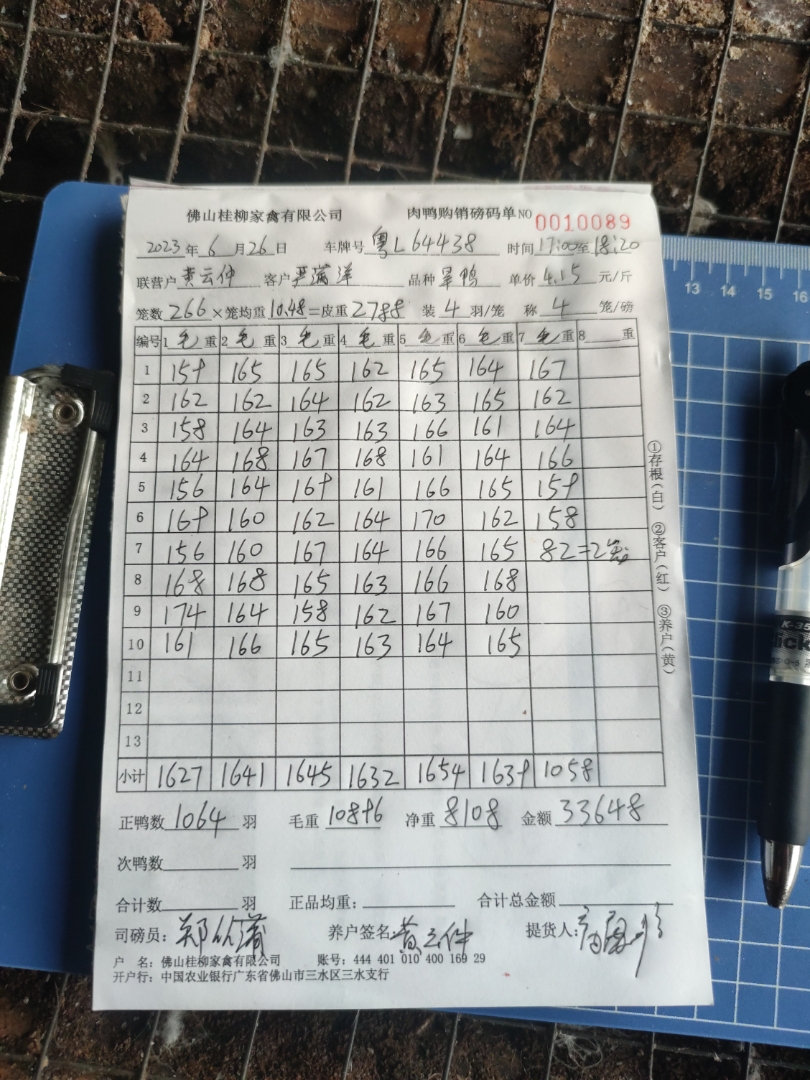 佛山桂柳家禽有限公司 肉鸭购销磅码单 NO 0010089
2023年6月26日 车牌号 粤L64438 时间 17:00至18:20
联营户 黄云仲 客户 严满洋 品种 旱鸭 单价 4.15 元/斤
笼数 266 × 笼均重 10.48 = 皮重 2788 装 4 羽/笼 称 4 笼/磅
编号 1 毛 重 2 毛 重 3 毛 重 4 毛 重 5 毛 重 6 毛 重 7 毛 重 8 重
1 159 165 165 162 165 164 167
2 162 162 164 162 163 165 162
3 158 164 163 163 166 161 164
4 164 168 167 168 161 164 166
5 156 164 169 161 166 165 159
6 169 160 162 164 170 162 158
7 156 160 167 164 166 165 82=2笼
8 168 168 165 163 166 168
9 174 164 158 162 167 160
10 161 166 165 163 164 165
11
12
13
小计 1627 1641 1645 1632 1654 1639 1058
正鸭数 1064 羽 毛重 10896 净重 8108 金额 33648
次鸭数 羽
合计数 羽 正品均重: 合计总金额
司磅员: 养户签名: 黄云仲 提货人:
户 名: 佛山桂柳家禽有限公司 账号: 444 401 010 400 169 29
开户行: 中国农业银行广东省佛山市三水区三水支行
①存根(白) ②客户(红) ③养户(黄)
13 14 15 16
K-35